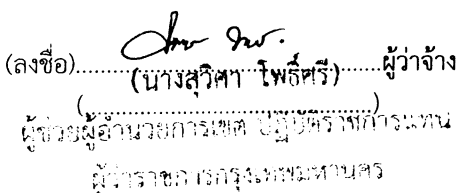 (ลงชื่อ)..............................ผู้ว่าจ้าง
(นางสุวิศา โพธิ์ศรี)
(..............................)
ผู้ช่วยผู้อำนวยการเขต ปฏิบัติราชการแทน
ผู้ว่าราชการกรุงเทพมหานคร